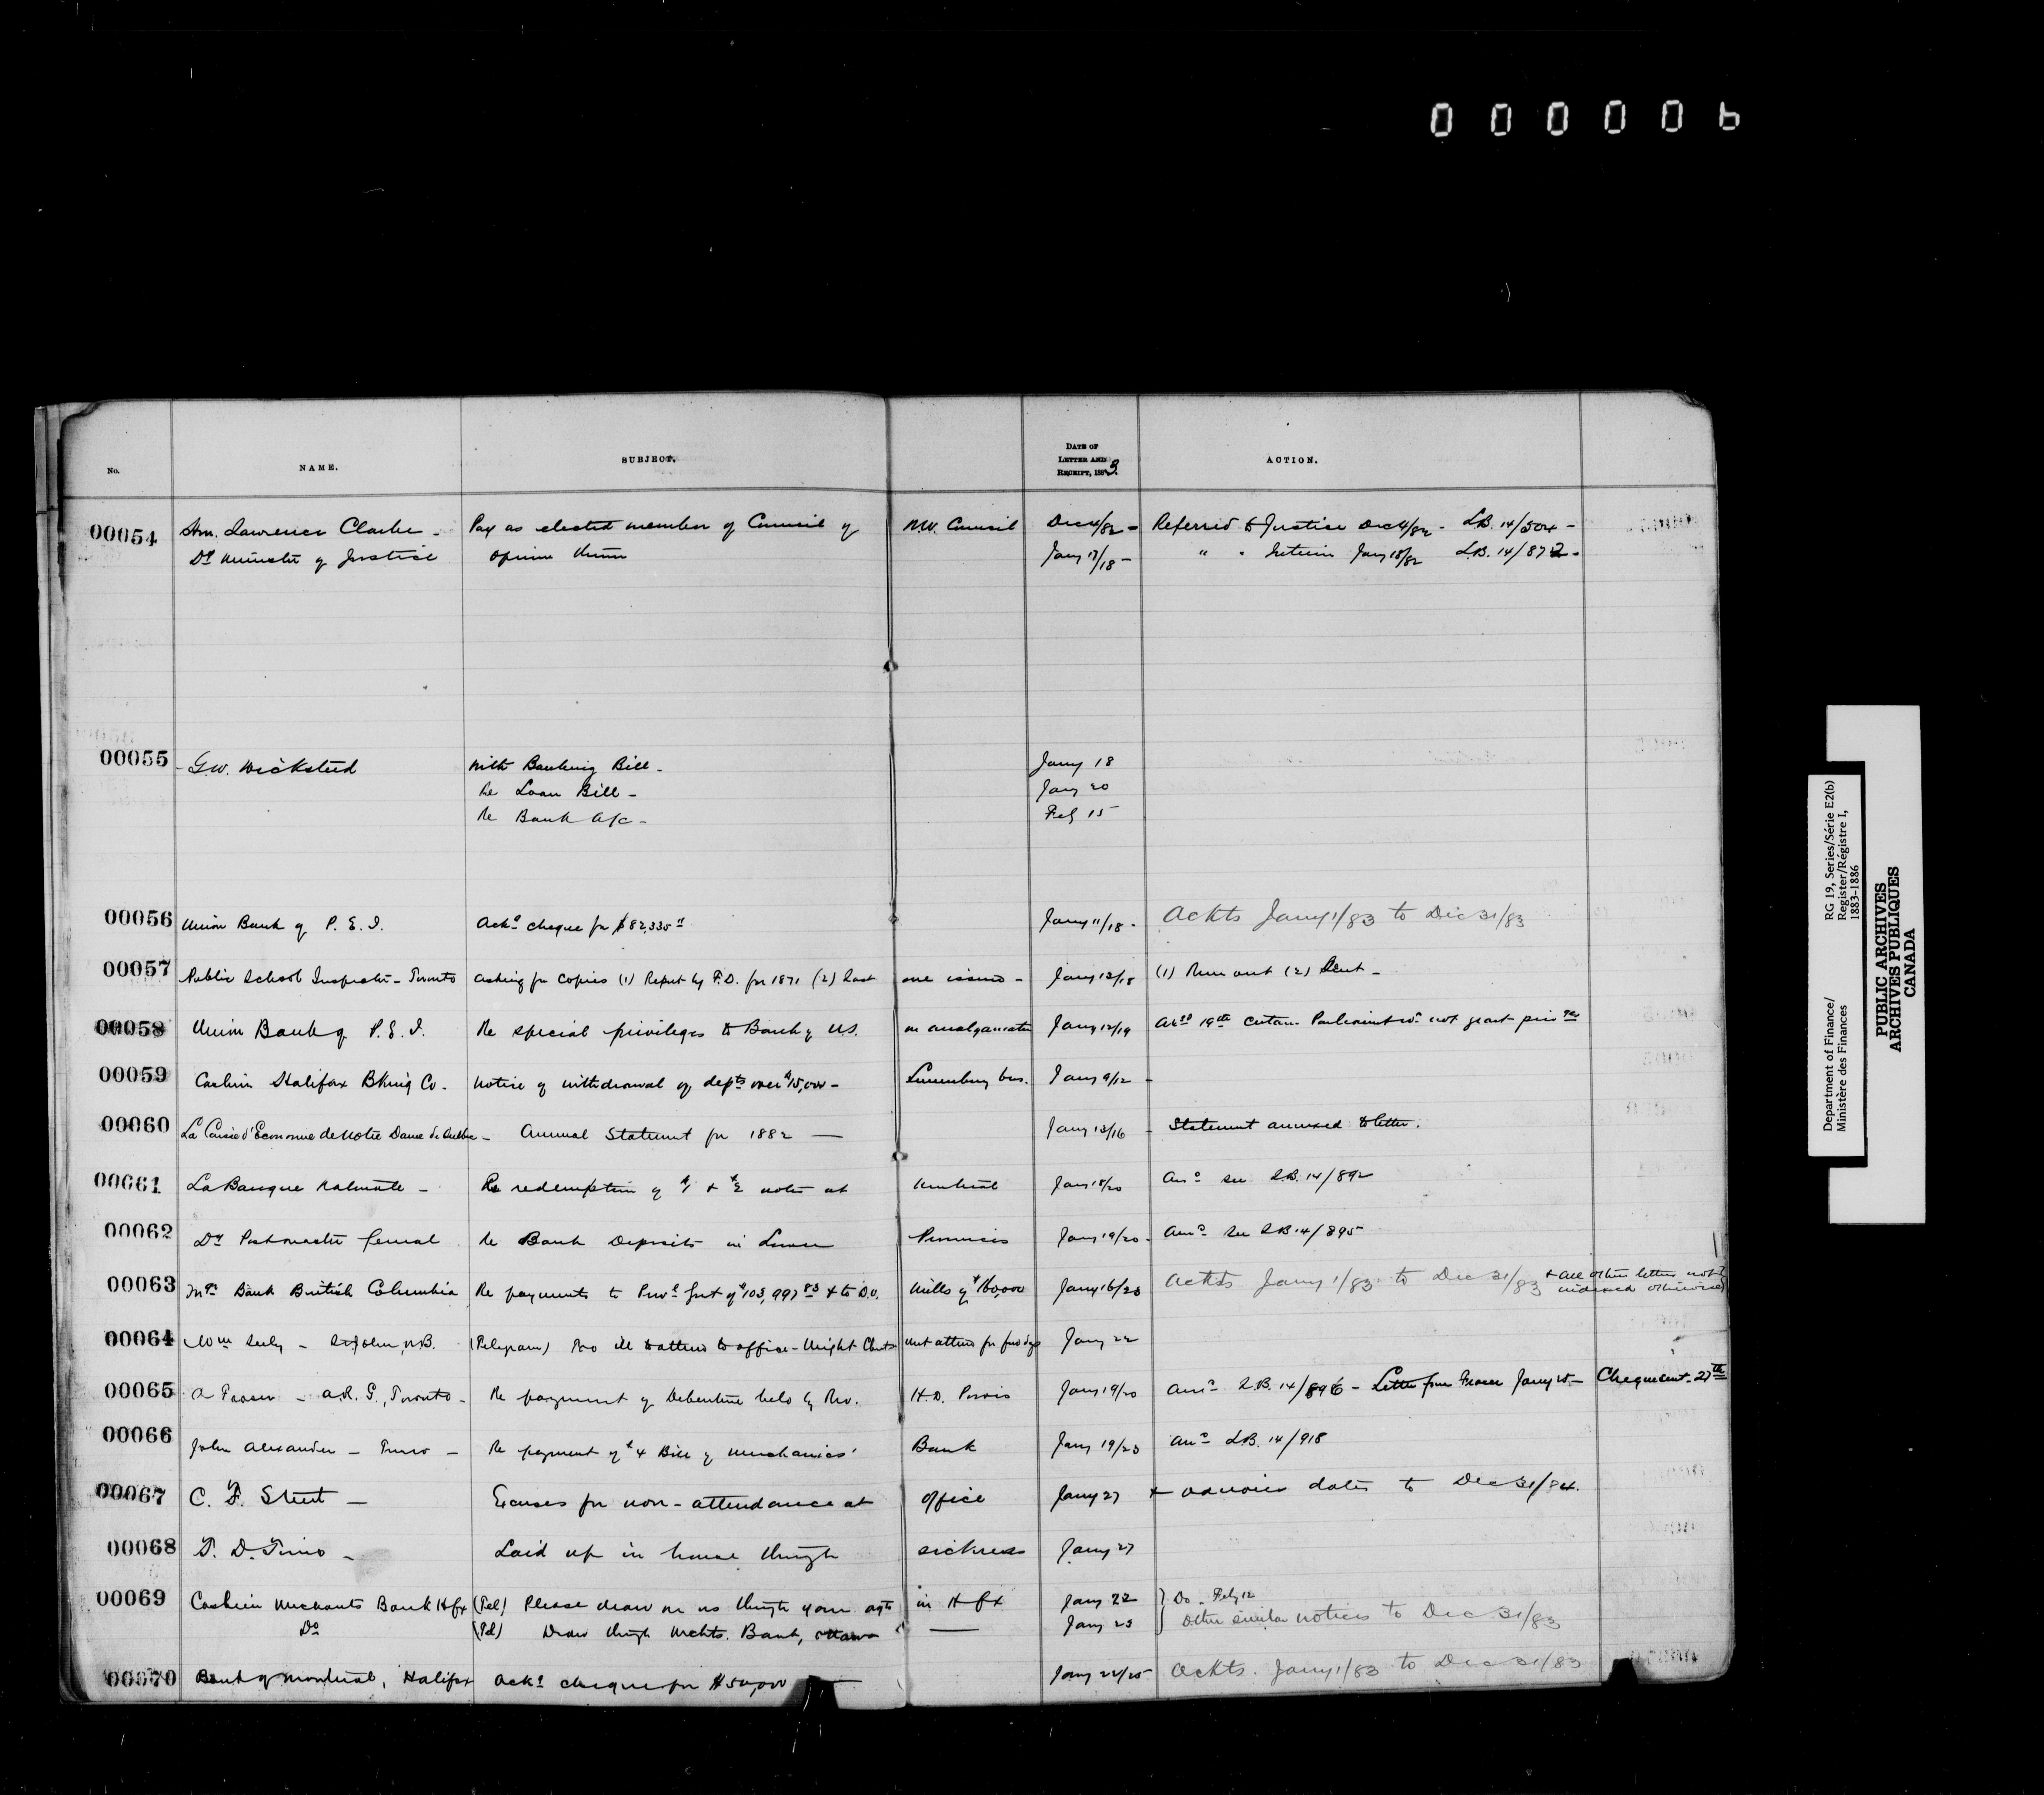 000006
No. NAME. SUBJECT. DATE OF LETTER AND RECEIPT, 1883. ACTION.
00054 Hon. Lawrence Clarke - Pay as elected member of Council of N.W. Council Dec 4/82 - Referred to Justice Dec 4/82 - L.B. 14/504 -
Dy Minister of Justice Opinion thereon Jany 17/18 - " " Interior Jany 18/82 L.B. 14/872 -
00055 G.W. Wicksteed With Banking Bill - Jany 18
Re Loan Bill - Jany 20
Re Bank a/c - Feby 15
00056 Union Bank of P.E.I. Ackg cheque for $82,335 Jany 11/18 - Ackts Jany 1/83 to Dec 31/83
00057 Public School Inspector - Toronto Asking for copies (1) Report by F.D. for 1871 (2) Last one issued - Jany 12/18 (1) Run out (2) Sent -
00058 Union Bank of P.E.I. Re special privileges to Bank of N.S. on amalgamation Jany 12/19 19th Parliament not grant
00059 Cashier Halifax Bkng Co. Notice of withdrawal of depts over $15,000 - Lunenburg Jany 9/12 -
00060 La Caisse d'Economie de Notre Dame de Quebec - Annual Statement for 1882 — Jany 13/16 - Statement annexed to letter.
00061 La Banque Nationale - Re redemption of $1 & $2 notes at Montreal Jany 18/20 Ansd see L.B. 14/892
00062 Dy Postmaster General Re Bank Deposits in Lower Provinces Jany 19/20 - Ansd see L.B. 14/895
00063 Bank British Columbia Re payments to Provl Govt of $103,997 83 & to D.O. Mills of $160,000 Jany 16/23 Ackts Jany 1/83 to Dec 31/83 & all other letters not
indexed otherwise
00064 Wm Seely - St John, N.B. (Telegram) Too ill to attend to office - Wright Jany 22
00065 A Fraser - A.R.G., Toronto - Re payment of Debenture held by Rev. H.D. Jany 19/20 Ansd L.B. 14/896 - Letter from Fraser Jany 25 - Cheque sent - 27th
00066 John Alexander - Truro - Re payment of $4 Bill of Mechanics' Bank Jany 19/23 Ansd L.B. 14/918
00067 C. F. Street - Excuses for non-attendance at office Jany 27 & various dates to Dec 31/84.
00068 T. D. Tims - Laid up in house through sickness Jany 27
00069 Cashier Merchants Bank Hfx (Tel) Please draw on us through your agts in Hfx Jany 22 } Do - Feby 12
Do (Tel) Draw through Mchts. Bank, Ottawa — Jany 23 } Other similar notices to Dec 31/83
00070 Bank of Montreal, Halifax Ackg cheque for $50,000 — Jany 22/25 Ackts. Jany 1/83 to Dec 31/83
Department of Finance/
Ministère des Finances
RG 19, Series/Série E2(b)
Register/Régistre I,
1883-1886
PUBLIC ARCHIVES
ARCHIVES PUBLIQUES
CANADA